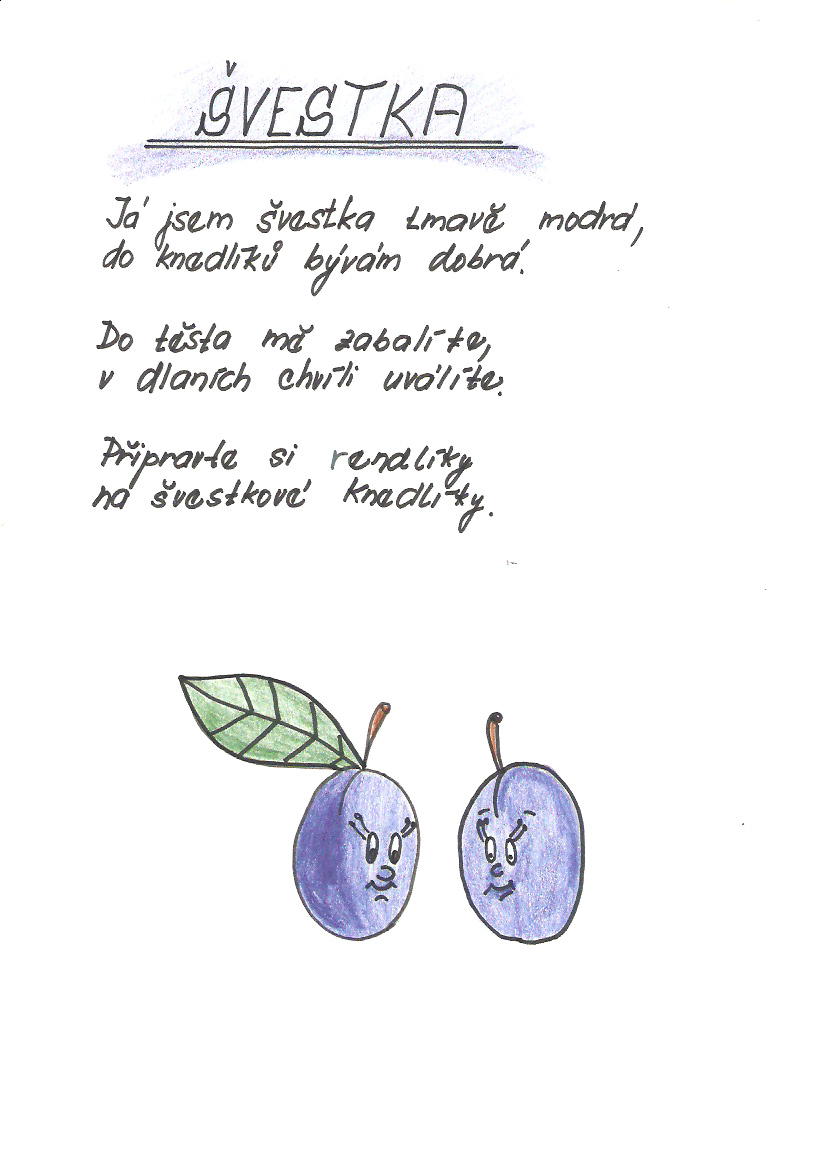 ŠVESTKA
Já jsem švestka tmavě modrá,
do knedlíků bývám dobrá.
Do těsta mě zabalíte,
v dlaních chvíli uválíte.
Připravte si rendlíky
na švestkové knedlíky.